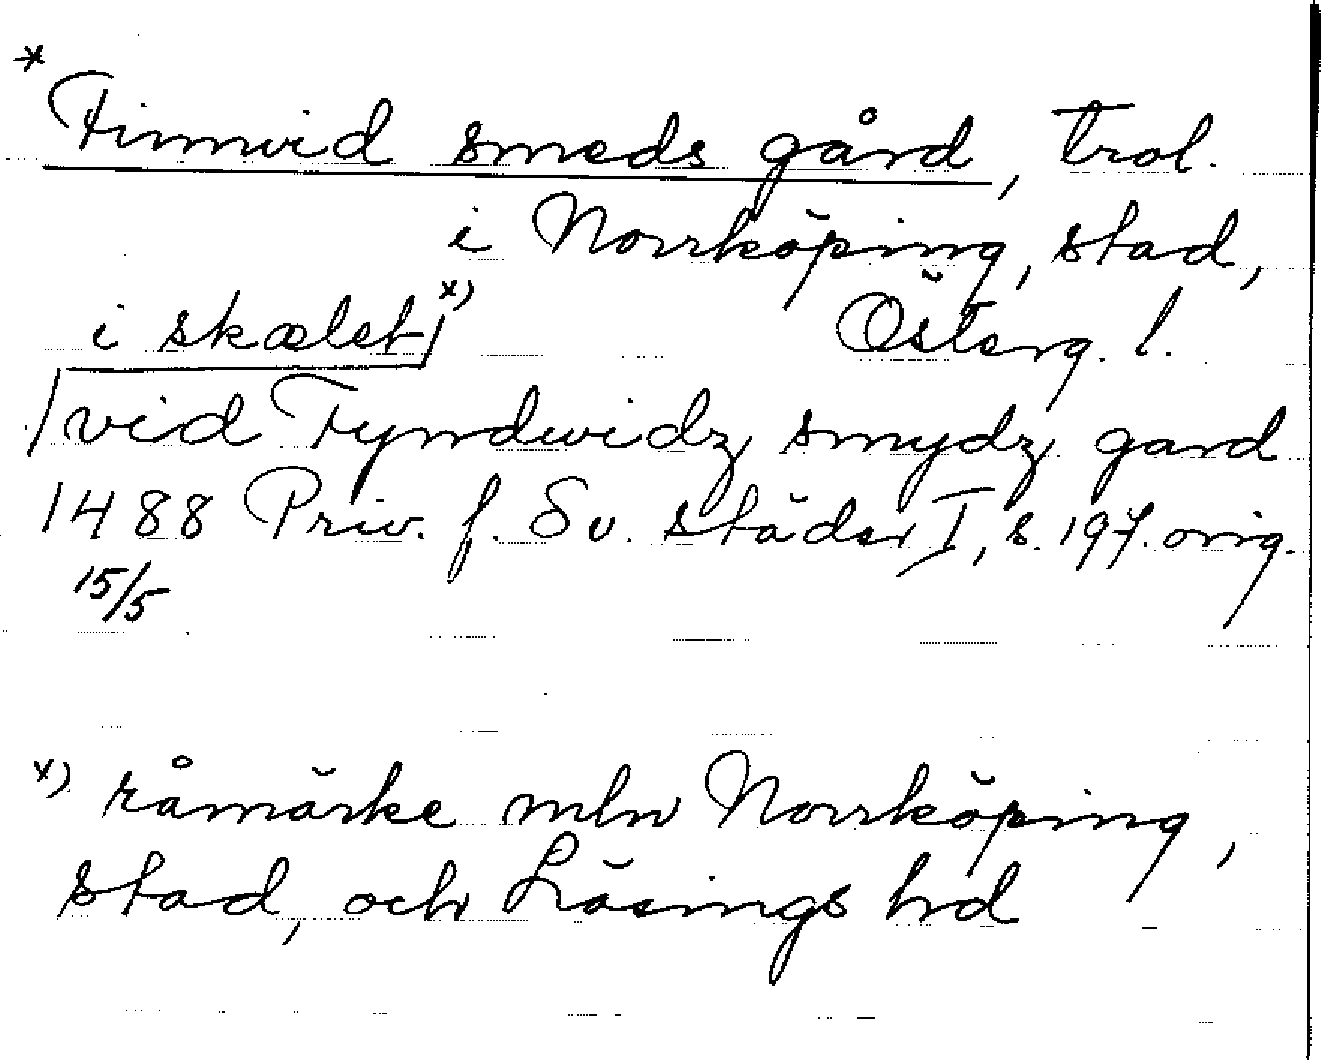 * Finnvid smeds gård, trol.
i Norrköping, stad,
i skælet x) Österg. l.
vid Fyndwidz smydz gard
1488 Priv. f. Sv. städer I, s. 197. orig.
15/5
x) råmärke mln Norrköping,
stad, och Lösings hd